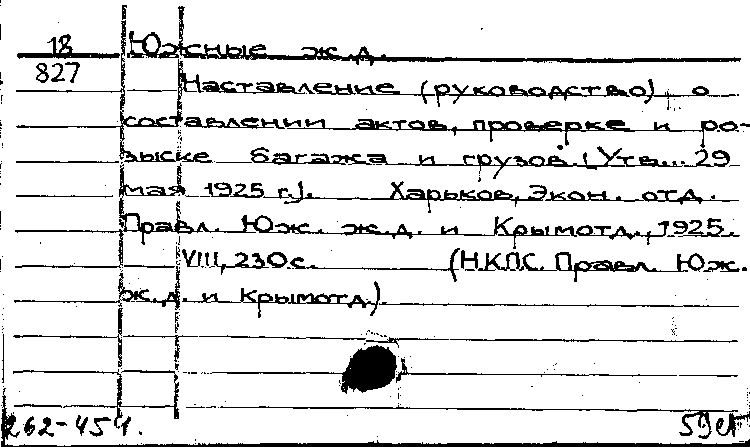 18 Южные ж.д.
827
Наставление (руководство) о
составлении актов, проверке и ро-
зыске багажа и грузов. (Утв... 29
мая 1925 г.). Харьков, Экон. отд.
Правл. Юж. ж.д. и Крымотд., 1925.
VIII, 230 с. (Н.К.П.С. Правл. Юж.
ж.д. и Крымотд.).
262-454.